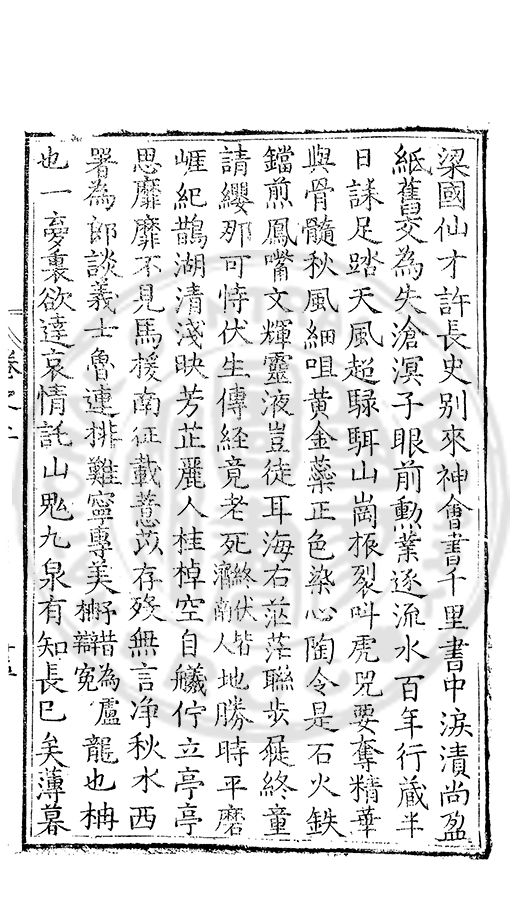 梁國仙才許長史別來神會書千里書中淚漬尚盈
紙舊交為失滄溟子眼前勳業逐流水百年行藏半
日誄足踏天風超騄駬山崗振裂叫虎兕要奪精華
與骨髓秋風細咀黄金蘂正色染心陶令是石火鉄
鐺煎鳳嘴文輝靈液豈徒耳海右茫茫聯步屣終童
請纓那可恃伏生傳経竟老死終伏皆濟南人地勝時平磨
崕紀鵲湖清淺映芳芷麗人桂棹空自艤佇立亭亭
思靡靡不見馬援南征載薏苡存殁無言净秋水西
署為郎談義士魯連排難寧專美野惜為盧柟辯寃龍也柟
也一夣裏欲達哀情託山鬼九泉有知長已矣薄暮